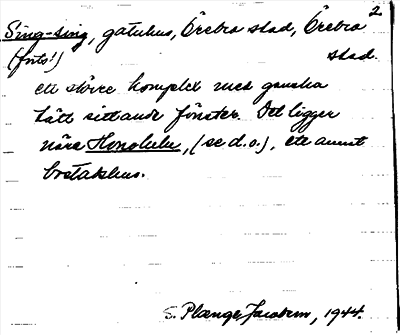 2
Sing-sing, gatuhus, Örebro stad, Örebro
(forts!) stad.
ett större komplex med ganska
tätt sittande fönster. Det ligger
nära Honolulu, (se d.o.), ett annat
bostadshus.
S. Plænge Jacobson, 1944.